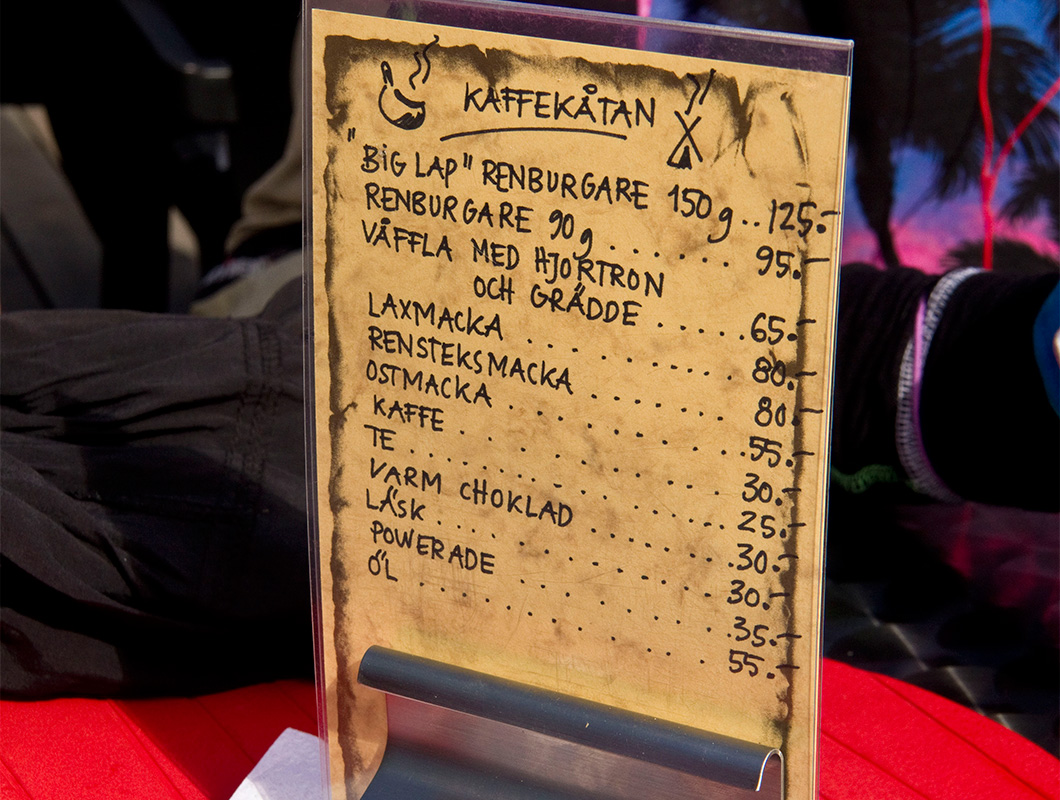 KAFFEKÅTAN
"BIG LAP" RENBURGARE 150g..125:-
RENBURGARE 90g......95:-
VÅFFLA MED HJORTRON
OCH GRÄDDE .....65:-
LAXMACKA ........80:-
RENSTEKSMACKA ......80:-
OSTMACKA ........55:-
KAFFE ........30:-
TE ........25:-
VARM CHOKLAD ......30:-
LÄSK ........30:-
POWERADE ......35:-
ÖL ........55:-